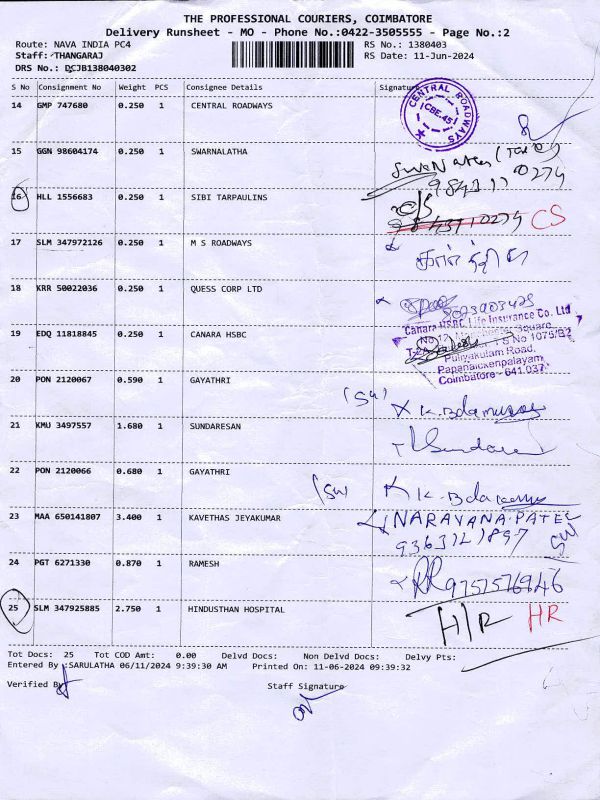 THE PROFESSIONAL COURIERS, COIMBATORE
Delivery Runsheet - MO - Phone No.:0422-3505555 - Page No.:2
Route: NAVA INDIA PC4 RS No.: 1380403
Staff: THANGARAJ RS Date: 11-Jun-2024
DRS No.: DCJB138040302
S No Consignment No Weight PCS Consignee Details Signature
14 GMP 747680 0.250 1 CENTRAL ROADWAYS
CENTRAL ROADWAYS
CBE-45
15 GGN 98604174 0.250 1 SWARNALATHA
16 HLL 1556683 0.250 1 SIBI TARPAULINS CS
17 SLM 347972126 0.250 1 M S ROADWAYS
18 KRR 50022036 0.250 1 QUESS CORP LTD
19 EDQ 11818845 0.250 1 CANARA HSBC
Canara HSBC Life Insurance Co. Ltd
Puliyakulam Road,
Papanaickenpalayam,
Coimbatore - 641 037.
20 PON 2120067 0.590 1 GAYATHRI
21 KMU 3497557 1.680 1 SUNDARESAN
22 PON 2120066 0.680 1 GAYATHRI
23 MAA 650141807 3.400 1 KAVETHAS JEYAKUMAR NARAYANA PATEL
24 PGT 6271330 0.870 1 RAMESH
25 SLM 347925885 2.750 1 HINDUSTHAN HOSPITAL H/R HR
Tot Docs: 25 Tot COD Amt: 0.00 Delvd Docs: Non Delvd Docs: Delvy Pts:
Entered By :SARULATHA 06/11/2024 9:39:30 AM Printed On: 11-06-2024 09:39:32
Verified By Staff Signature